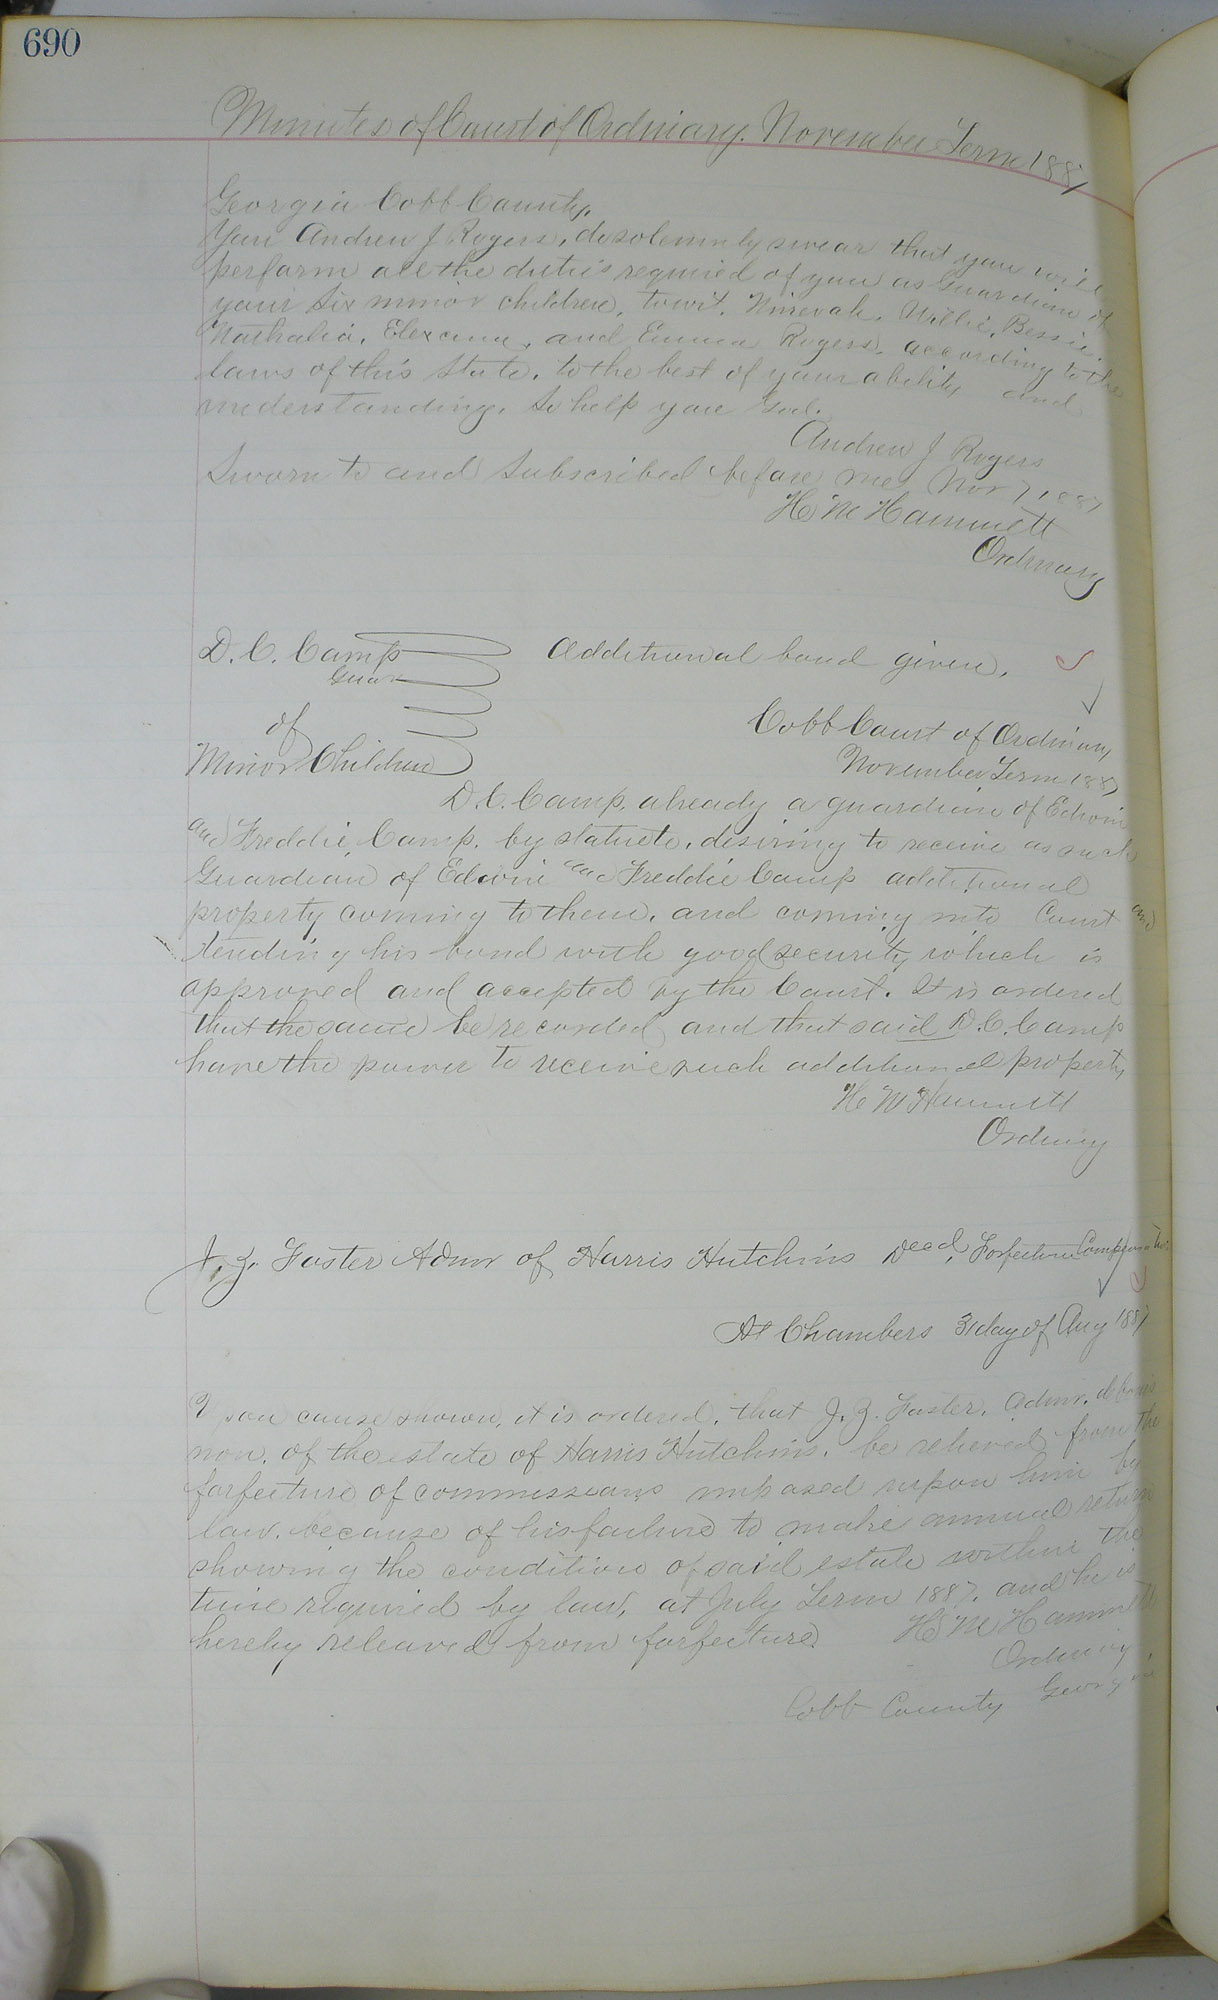 690
Minutes of Court of Ordinary. November Term 1887
Georgia Cobb County.
You Andrew J Rogers, do solemnly swear that you will
perform all the duties required of you as Guardian of
your six minor children, towit, Ninevah, Willie, Bessie,
Nathalia, Elexana, and Emma Rogers, according to the
laws of this State, to the best of your ability and
understanding, So help you God.
Andrew J Rogers
Sworn to and Subscribed before me Nov 7 1887
H M Hammett
Ordinary
D. C. Camp Additional bond given.
Guar
of
Minor Children
Cobb Court of Ordinary
November Term 1887
D. C. Camp. already a guardian of Edwin
and Freddie Camp. by statute, desiring to receive as such
Guardian of Edwin and Freddie Camp additional
property coming to them, and coming into Court and
tending his bond with good security which is
approved and accepted by the Court. It is ordered
that the same be recorded and that said D. C. Camp
have the power to receive such additional property
H M Hammett
Ordinary
J. Z. Foster Admr of Harris Hutchins Decd, Forfeiture
At Chambers 31 day of Aug 1887
Upon cause shown, it is ordered, that J. Z. Foster, Admr. de bonis
non. of the estate of Harris Hutchins. be relieved from the
forfeiture of commissions imposed upon him by
law. because of his failure to make annual return
showing the condition of said estate within the
time required by law, at July Term 1887. and he is
hereby releaved from forfeiture H M Hammett
Ordinary
Cobb County Georgia